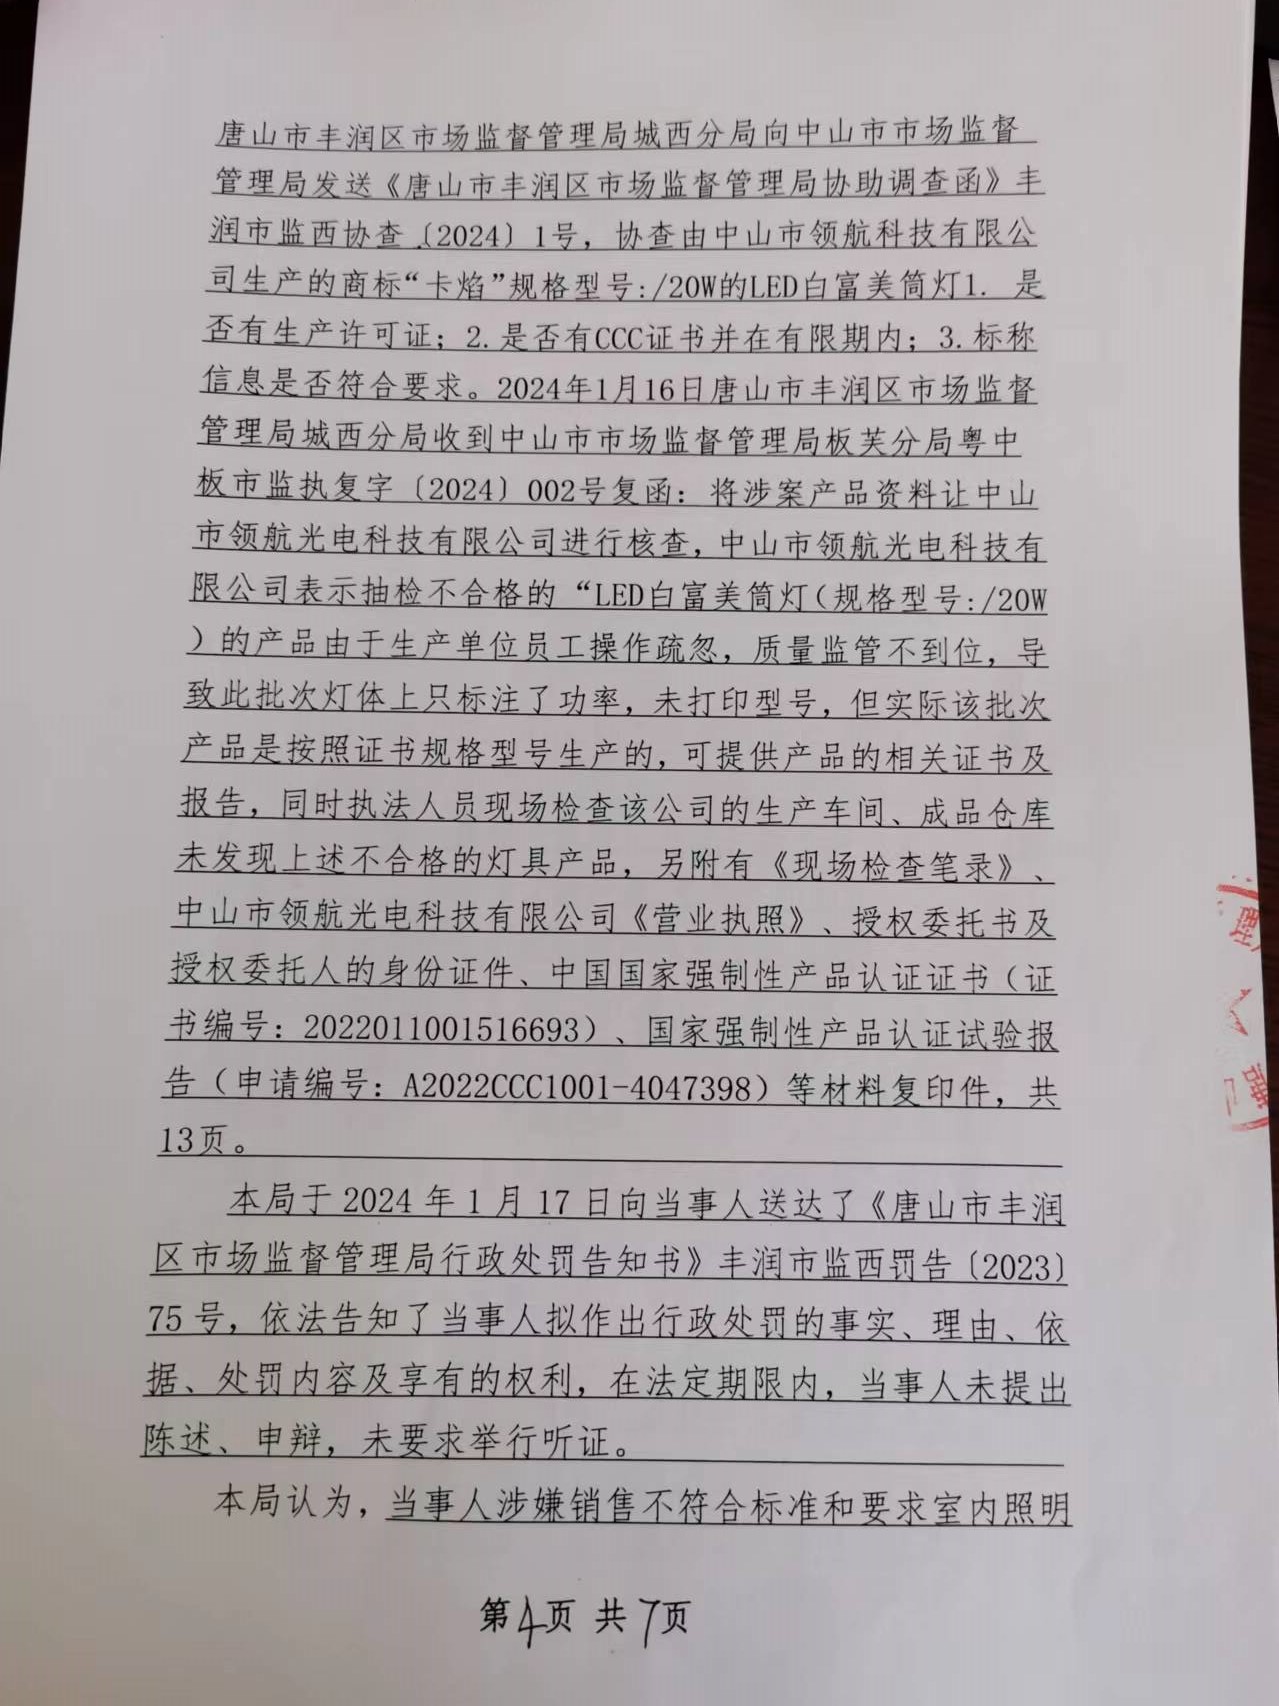 唐山市丰润区市场监督管理局城西分局向中山市市场监督
管理局发送《唐山市丰润区市场监督管理局协助调查函》丰
润市监西协查〔2024〕1号，协查由中山市领航科技有限公
司生产的商标“卡焰”规格型号:/20W的LED白富美筒灯1. 是
否有生产许可证；2.是否有CCC证书并在有限期内；3.标称
信息是否符合要求。2024年1月16日唐山市丰润区市场监督
管理局城西分局收到中山市市场监督管理局板芙分局粤中
板市监执复字〔2024〕002号复函：将涉案产品资料让中山
市领航光电科技有限公司进行核查，中山市领航光电科技有
限公司表示抽检不合格的“LED白富美筒灯(规格型号:/20W
)的产品由于生产单位员工操作疏忽，质量监管不到位，导
致此批次灯体上只标注了功率，未打印型号，但实际该批次
产品是按照证书规格型号生产的，可提供产品的相关证书及
报告，同时执法人员现场检查该公司的生产车间、成品仓库
未发现上述不合格的灯具产品，另附有《现场检查笔录》、
中山市领航光电科技有限公司《营业执照》、授权委托书及
授权委托人的身份证件、中国国家强制性产品认证证书（证
书编号：2022011001516693）、国家强制性产品认证试验报
告（申请编号：A2022CCC1001-4047398）等材料复印件，共
13页。
本局于 2024 年 1 月 17 日向当事人送达了《唐山市丰润
区市场监督管理局行政处罚告知书》丰润市监西罚告〔2023〕
75 号，依法告知了当事人拟作出行政处罚的事实、理由、依
据、处罚内容及享有的权利，在法定期限内，当事人未提出
陈述、申辩，未要求举行听证。
本局认为，当事人涉嫌销售不符合标准和要求室内照明
第4页 共7页